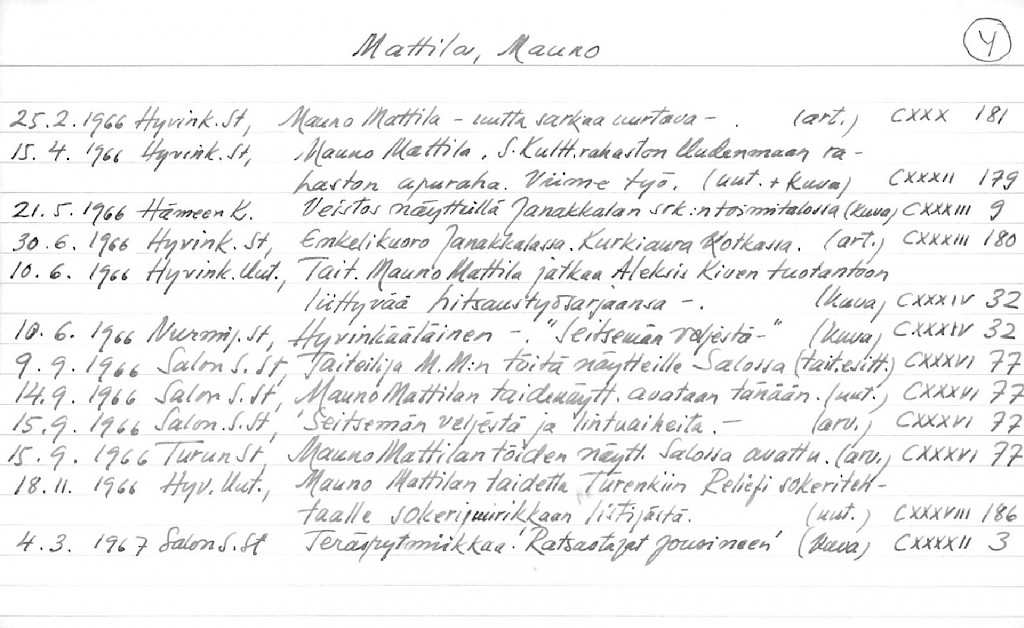 Mattila, Mauno
4
25.2.1966 Hyvink. St, Mauno Mattila – uutta sarkaa uurtava – . (art.) CXXX 181
15. 4. 1966 Hyvink. St, Mauno Mattila, S. Kultt.rahaston Uudenmaan ra-
haston apuraha. Viime työ. (uut. + kuva) CXXXII 179
21. 5. 1966 Hämeen K. Veistos näytteillä Janakkalan srk:n toimitalossa (kuva) CXXXIII 9
30. 6. 1966 Hyvink. St, Enkelikuoro Janakkalassa. Kurkiaura Kotkassa. (art.) CXXXIII 180
10. 6. 1966 Hyvink. Uut., Tait. Mauno Mattila jatkaa Aleksis Kiven tuotantoon
liittyvää hitsaustyösarjaansa – . (kuva) CXXXIV 32
10. 6. 1966 Nurmij. St, Hyvinkääläinen – . "Seitsemän veljestä –" (kuva) CXXXIV 32
9. 9. 1966 Salon S. St, Taiteilija M.M:n töitä näytteille Salossa (tait.esitt.) CXXXVI 77
14. 9. 1966 Salon S. St, Mauno Mattilan taidenäytt. avataan tänään. (uut.) CXXXVI 77
15. 9. 1966 Salon. S. St, Seitsemän veljestä ja lintuaiheita. – (arv.) CXXXVI 77
15. 9. 1966 Turun St, Mauno Mattilan töiden näytt. Salossa avattu. (arv.) CXXXVI 77
18. 11. 1966 Hyv. Uut., Mauno Mattilan taidetta Turenkiin Reliefi sokeriteh-
taalle sokerijuurikkaan listijästä. (uut.) CXXXVIII 186
4. 3. 1967 Salon S. St Teräsrytmiikkaa: 'Ratsastajat jousineen' (kuva) CXXXXII 3